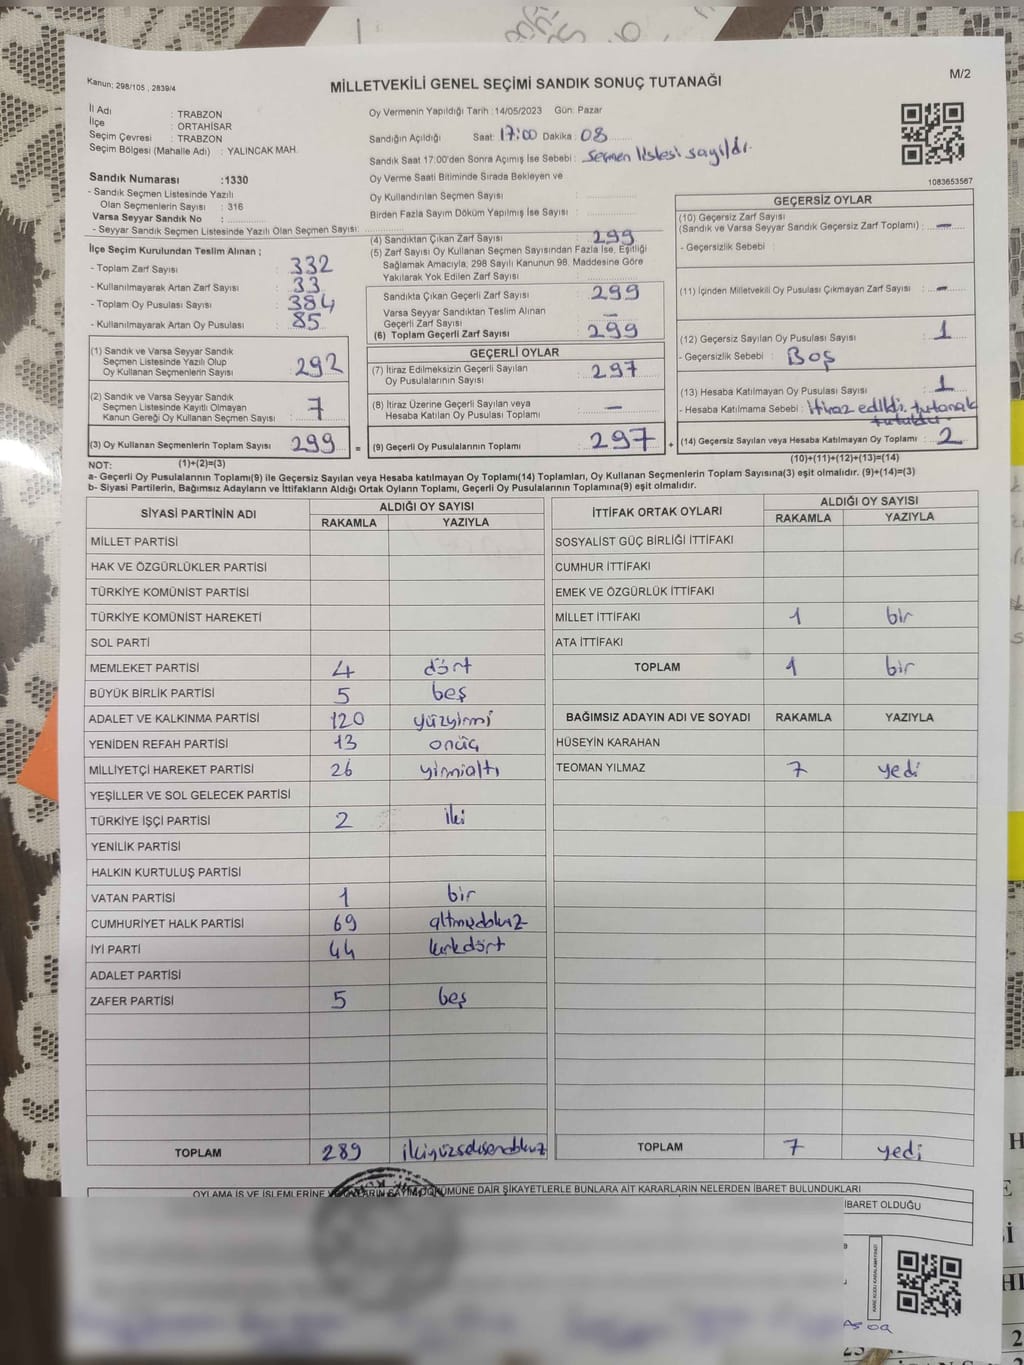 Kanun: 298/105 , 2839/4
MİLLETVEKİLİ GENEL SEÇİMİ SANDIK SONUÇ TUTANAĞI
M/2
İl Adı : TRABZON
İlçe : ORTAHİSAR
Seçim Çevresi : TRABZON
Seçim Bölgesi (Mahalle Adı) : YALINCAK MAH.
Oy Vermenin Yapıldığı Tarih : 14/05/2023 Gün: Pazar
Sandığın Açıldığı Saat: 17:00 Dakika : 08
Sandık Saat 17:00'den Sonra Açımış İse Sebebi : Seçmen listesi sayıldı.
Oy Verme Saati Bitiminde Sırada Bekleyen ve
Oy Kullandırılan Seçmen Sayısı :
Birden Fazla Sayım Döküm Yapılmış İse Sayısı :
1083653567
Sandık Numarası :1330
- Sandık Seçmen Listesinde Yazılı
Olan Seçmenlerin Sayısı : 316
Varsa Seyyar Sandık No :
- Seyyar Sandık Seçmen Listesinde Yazılı Olan Seçmen Sayısı:
İlçe Seçim Kurulundan Teslim Alınan ;
- Toplam Zarf Sayısı : 332
- Kullanılmayarak Artan Zarf Sayısı : 33
- Toplam Oy Pusulası Sayısı : 384
- Kullanılmayarak Artan Oy Pusulası : 85
(1) Sandık ve Varsa Seyyar Sandık
Seçmen Listesinde Yazılı Olup
Oy Kullanan Seçmenlerin Sayısı : 292
(2) Sandık ve Varsa Seyyar Sandık
Seçmen Listesinde Kayıtlı Olmayan
Kanun Gereği Oy Kullanan Seçmen Sayısı : 7
(3) Oy Kullanan Seçmenlerin Toplam Sayısı : 299 =
(1)+(2)=(3)
(4) Sandıktan Çıkan Zarf Sayısı : 299
(5) Zarf Sayısı Oy Kullanan Seçmen Sayısından Fazla İse, Eşitliği
Sağlamak Amacıyla, 298 Sayılı Kanunun 98. Maddesine Göre
Yakılarak Yok Edilen Zarf Sayısı :
Sandıkta Çıkan Geçerli Zarf Sayısı : 299
Varsa Seyyar Sandıktan Teslim Alınan
Geçerli Zarf Sayısı : —
(6) Toplam Geçerli Zarf Sayısı : 299
GEÇERLİ OYLAR
(7) İtiraz Edilmeksizin Geçerli Sayılan
Oy Pusulalarının Sayısı : 297
(8) İtiraz Üzerine Geçerli Sayılan veya
Hesaba Katılan Oy Pusulası Toplamı : —
(9) Geçerli Oy Pusulalarının Toplamı : 297 +
GEÇERSİZ OYLAR
(10) Geçersiz Zarf Sayısı
(Sandık ve Varsa Seyyar Sandık Geçersiz Zarf Toplamı) : —
- Geçersizlik Sebebi :
(11) İçinden Milletvekili Oy Pusulası Çıkmayan Zarf Sayısı : —
(12) Geçersiz Sayılan Oy Pusulası Sayısı : 1
- Geçersizlik Sebebi : Boş
(13) Hesaba Katılmayan Oy Pusulası Sayısı : 1
- Hesaba Katılmama Sebebi : İtiraz edildi. tutanak
tutuldu.
(14) Geçersiz Sayılan veya Hesaba Katılmayan Oy Toplamı : 2
(10)+(11)+(12)+(13)=(14)
NOT:
a- Geçerli Oy Pusulalarının Toplamı(9) ile Geçersiz Sayılan veya Hesaba katılmayan Oy Toplamı(14) Toplamları, Oy Kullanan Seçmenlerin Toplam Sayısına(3) eşit olmalıdır. (9)+(14)=(3)
b- Siyasi Partilerin, Bağımsız Adayların ve İttifakların Aldığı Ortak Oyların Toplamı, Geçerli Oy Pusulalarının Toplamına(9) eşit olmalıdır.
SİYASİ PARTİNİN ADI ALDIĞI OY SAYISI
RAKAMLA YAZIYLA
MİLLET PARTİSİ
HAK VE ÖZGÜRLÜKLER PARTİSİ
TÜRKİYE KOMÜNİST PARTİSİ
TÜRKİYE KOMÜNİST HAREKETİ
SOL PARTİ
MEMLEKET PARTİSİ 4 dört
BÜYÜK BİRLİK PARTİSİ 5 beş
ADALET VE KALKINMA PARTİSİ 120 yüzyirmi
YENİDEN REFAH PARTİSİ 13 onüç
MİLLİYETÇİ HAREKET PARTİSİ 26 yirmialtı
YEŞİLLER VE SOL GELECEK PARTİSİ
TÜRKİYE İŞÇİ PARTİSİ 2 iki
YENİLİK PARTİSİ
HALKIN KURTULUŞ PARTİSİ
VATAN PARTİSİ 1 bir
CUMHURİYET HALK PARTİSİ 69 altmışdokuz
İYİ PARTİ 44 kırkdört
ADALET PARTİSİ
ZAFER PARTİSİ 5 beş
TOPLAM 289 ikiyüzseksendokuz
İTTİFAK ORTAK OYLARI ALDIĞI OY SAYISI
RAKAMLA YAZIYLA
SOSYALİST GÜÇ BİRLİĞİ İTTİFAKI
CUMHUR İTTİFAKI
EMEK VE ÖZGÜRLÜK İTTİFAKI
MİLLET İTTİFAKI 1 bir
ATA İTTİFAKI
TOPLAM 1 bir
BAĞIMSIZ ADAYIN ADI VE SOYADI RAKAMLA YAZIYLA
HÜSEYİN KARAHAN
TEOMAN YILMAZ 7 yedi
TOPLAM 7 yedi
OYLAMA İŞ VE İŞLEMLERİNE DAİR ŞİKAYETLERLE BUNLARA AİT KARARLARIN NELERDEN İBARET BULUNDUKLARI
İBARET OLDUĞU